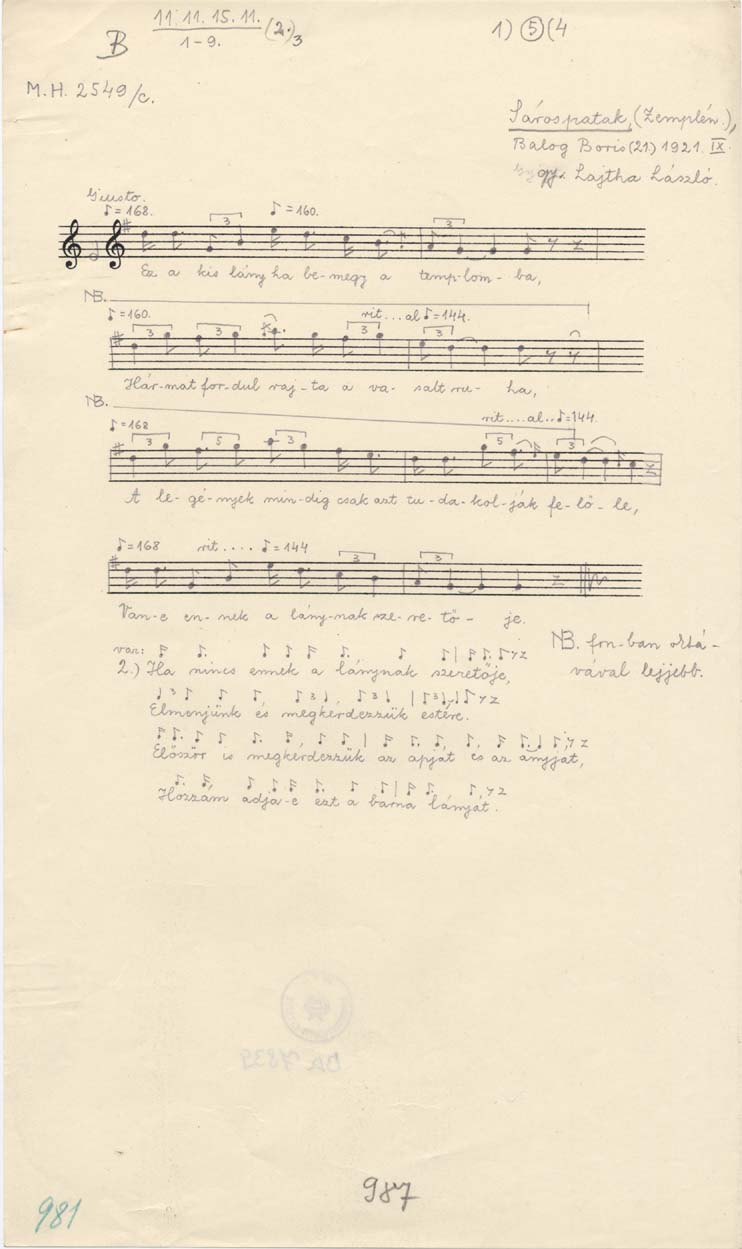 B
11. 11. 15. 11. (2.)3
1-9.
1) (5) (4
M.H. 2549/c.
Sárospatak, (Zemplén.),
Balog Boris (21.) 1921. IX.
gy. Lajtha László.
Giusto.
♪=168. 3 ♪=160. 3
Ez a kis lány ha be-megy a temp-lom-ba,
NB.
♪=160. 3 3 3 rit... al ♪=144. 3
Hár-mat for-dul raj-ta a va-salt ru-ha,
NB.
♪=168 3 5 3 rit.... al.. ♪=144. 5 3
A le-gé-nyek min-dig csak azt tu-da-kol-ják fe-lő-le,
♪=168 rit.... ♪=144 3 3
Van-e en-nek a lány-nak sze-re-tő-je.
NB. fon-ban oktá-
vával lejjebb.
var:
2.) Ha nincs ennek a lánynak szeretője,
3 3 3 3
Elmenjünk és megkérdezzük estére.
Először is megkérdezzük az apját és az anyját,
Hozzám adja-e ezt a barna lányát.
DA 7839
987
981